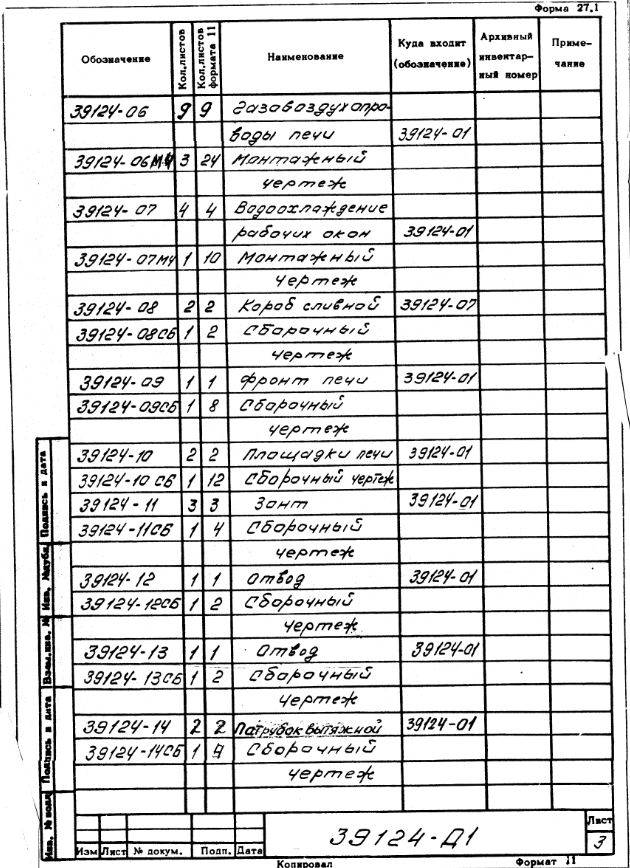 Форма 27.1
Обозначение Кол.листов Кол.листов формата 11 Наименование Куда входит (обозначение) Архивный инвентарный номер Приме-чание
39124-06 9 9 Газовоздухопро-
воды печи 39124-01
39124-06МЧ 3 24 Монтажный
чертеж
39124-07 4 4 Водоохлаждение
рабочих окон 39124-01
39124-07МЧ 1 10 Монтажный
чертеж
39124-08 2 2 Короб сливной 39124-07
39124-08СБ 1 2 Сборочный
чертеж
39124-09 1 1 Фронт печи 39124-01
39124-09СБ 1 8 Сборочный
чертеж
39124-10 2 2 Площадки печи 39124-01
39124-10 СБ 1 12 Сборочный чертеж
39124-11 3 3 Зонт 39124-01
39124-11СБ 1 4 Сборочный
чертеж
39124-12 1 1 Отвод 39124-01
39124-12СБ 1 2 Сборочный
чертеж
39124-13 1 1 Отвод 39124-01
39124-13СБ 1 2 Сборочный
чертеж
39124-14 2 2 Патрубок вытяжной 39124-01
39124-14СБ 1 4 Сборочный
чертеж
Инв. № подл Подпись и дата Взам.инв. № Инв. № дубл. Подпись и дата
39124-Д1
Лист
3
Изм Лист № докум. Подп. Дата
Копировал Формат 11